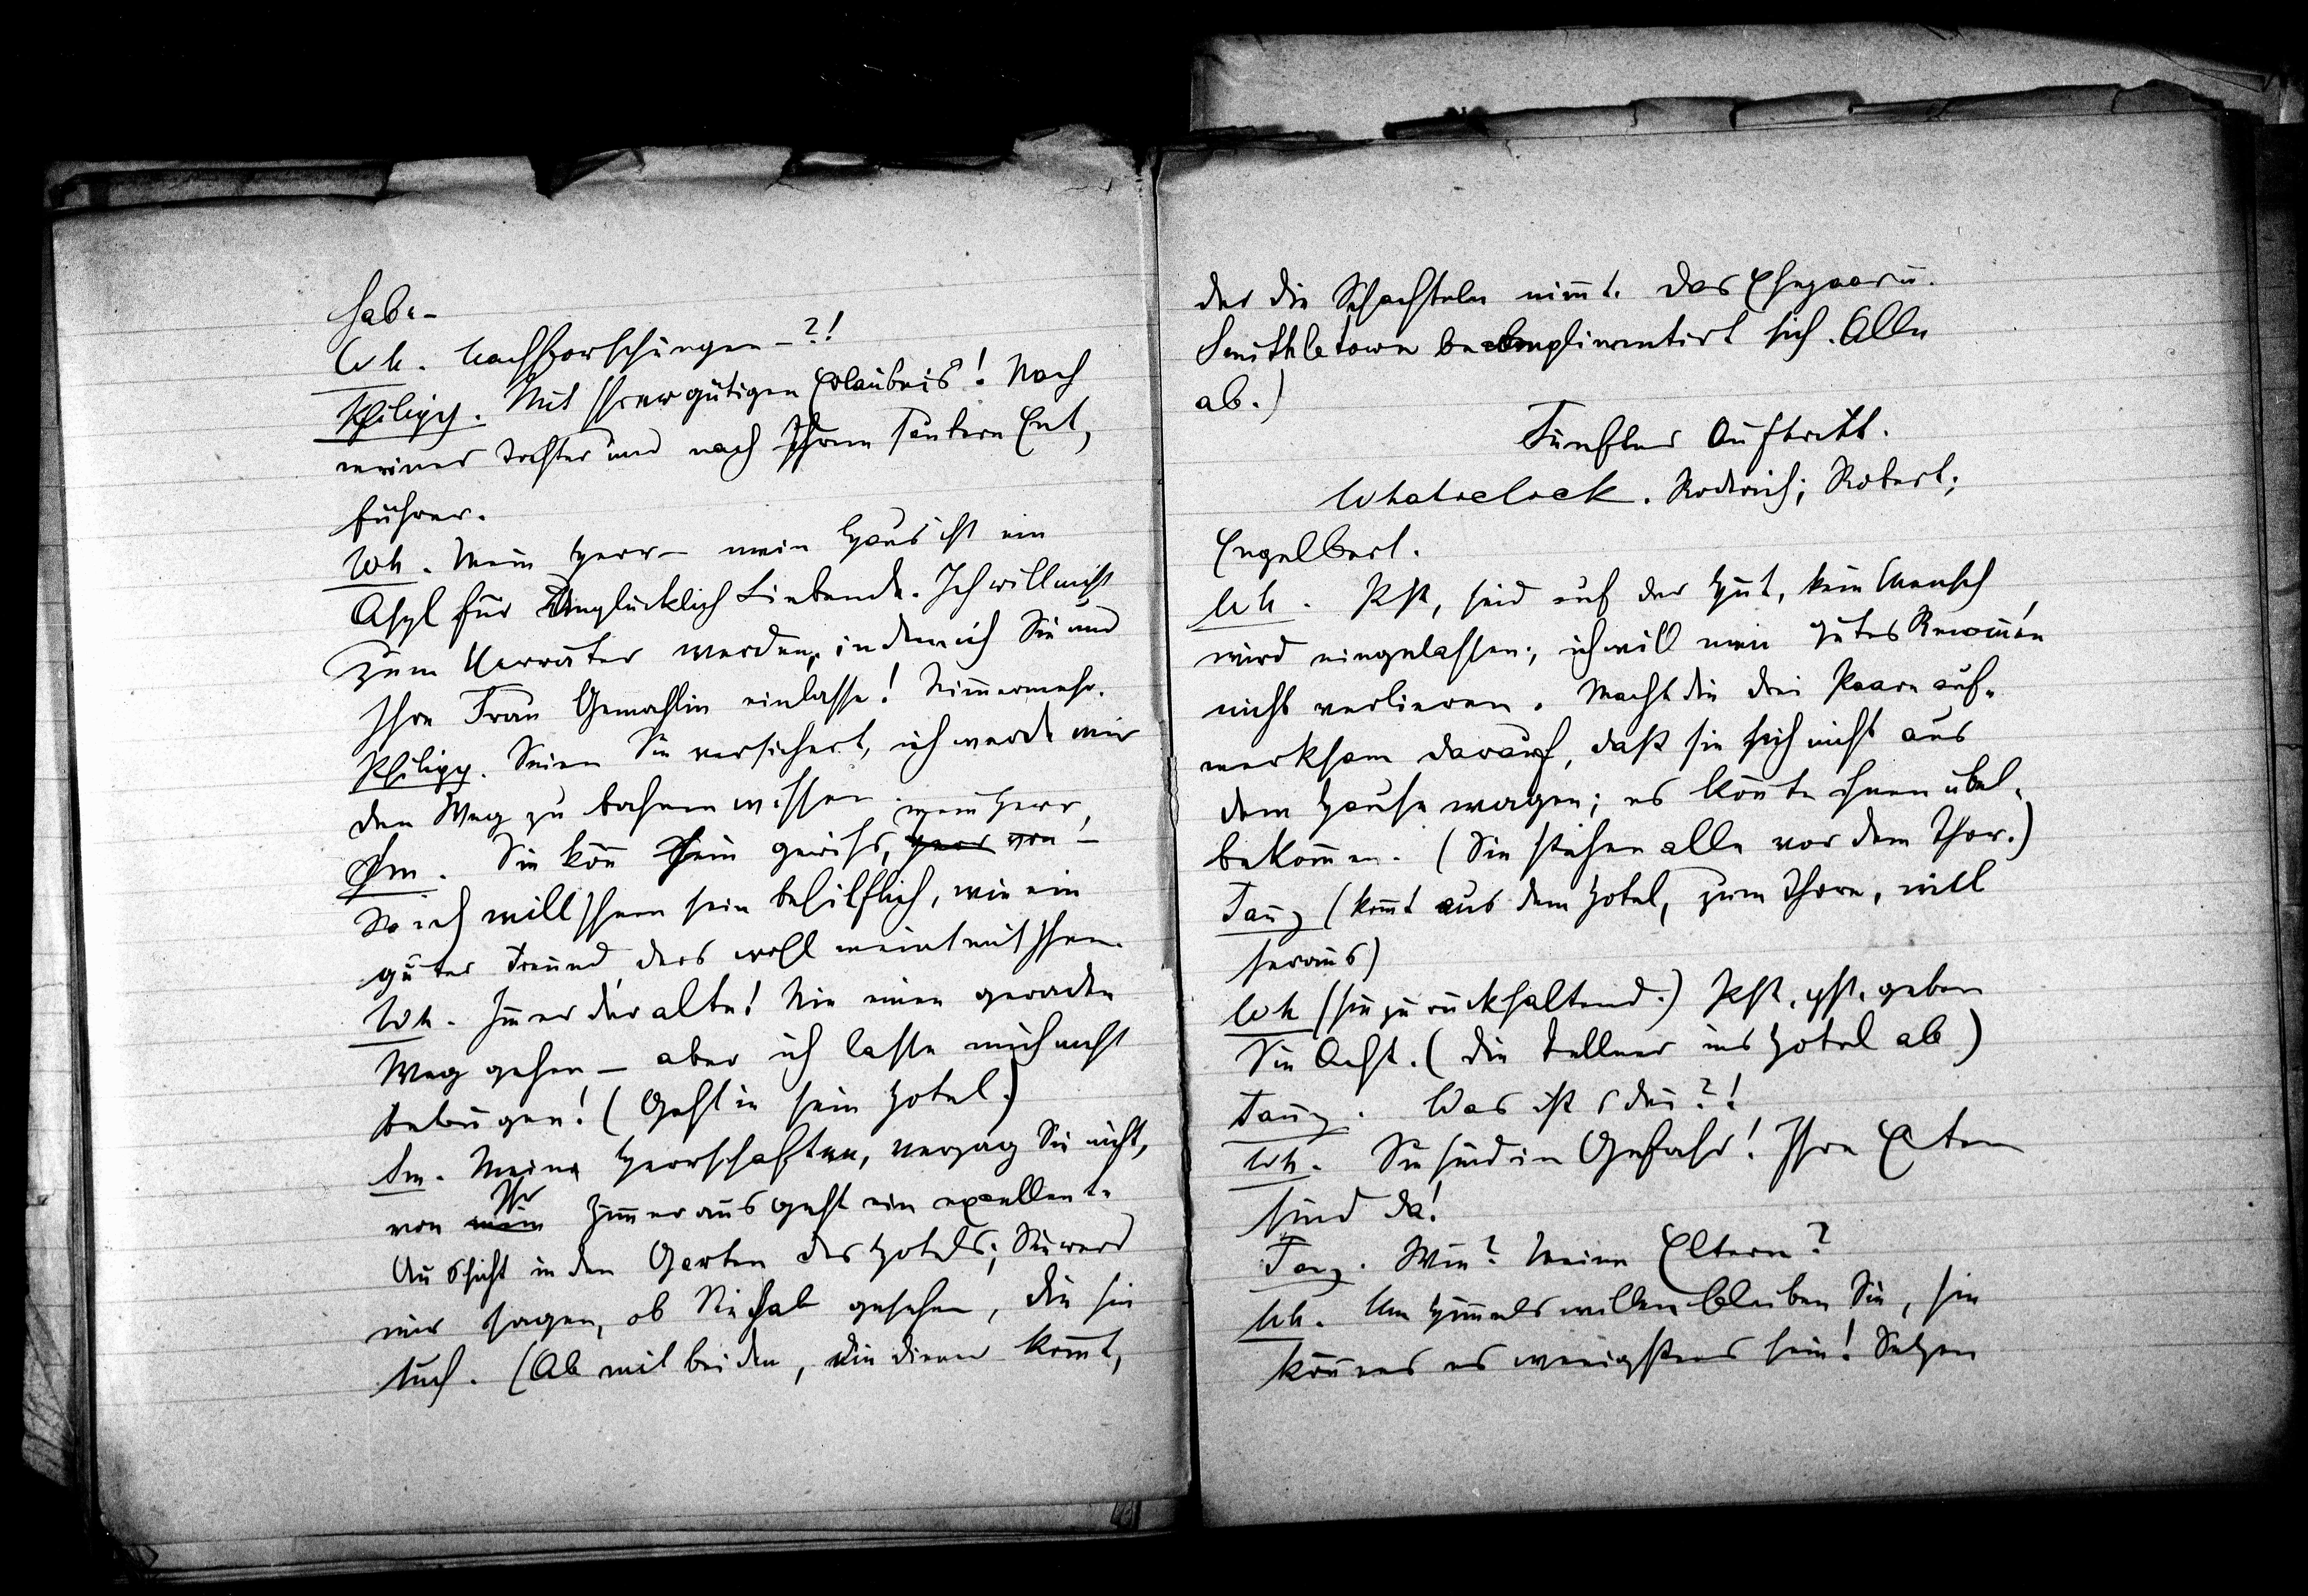 habe-
Wh. Nachforschungen -?!
Philipp. Mit Ihrer gütigen Erlaubnis! Nach
meiner Tochter und nach Ihrem saubern Ent,
führer.
Wh. Mein Herr - mein Haus ist ein
Asyl für Unglücklich Liebende. Ich will nicht
zum Verräter werden, indem ich Sie und
Ihre Frau Gemahlin einlasse! Nimmermehr.
Philipp. Seien Sie versichert, ich werde mir
den Weg zu bahnen wissen.
mein Herr,
Sm. Sie kön̄ sein gewiss, Herr von -
So ich will Ihnen sein behilflich, wie ein
guter Freund, der's wohl meint mit Ihnen.
Wh. Im̄er der alte! Nie einen geraden
Weg gehen - aber ich lasse mich nicht
betrügen! (Geht in sein Hotel.)
Sm. Meine Herrschaften, verzag Sie nicht,
Ihr
von mein Zim̄er aus geht ein excellente
Aussicht in den Garten des Hotels; Sie werd
mir sagen, ob Sie hab gesehen, die sie
such. (Ab mit beiden, ein Diener kom̄t,
der die Schachteln nim̄t. Das Ehepaar u.
Smithletown becomplimentirt sich. Alle
ab.)
Fünfter Auftritt.
Whatoclock. Rodrich; Robert;
Engelbert.
Wh. Pst, seid auf der Hut, kein Mensch
wird eingelassen; ich will mein gutes Renom̄én
nicht verlieren. Macht die drei Paare auf-
merksam darauf, daß sie sich nicht aus
dem Hause wagen; es kön̄te ihnen übel
bekom̄en. (Sie stehen alle vor dem Thor.)
Tanz (kom̄t aus dem Hotel, zum Thore, will
heraus)
Wh (sie zurückhaltend.) Pst, pst, geben
Sie Acht. (Die Kellner ins Hotel ab)
Tanz. Was ist's den̄?!
Wh. Sie sind in Gefahr! Ihre Eltern
sind da!
Tanz. Wie? Meine Eltern?
Wh. Um Him̄els willen bleiben Sie, sie
kön̄en es wenigstens sein! Setzen